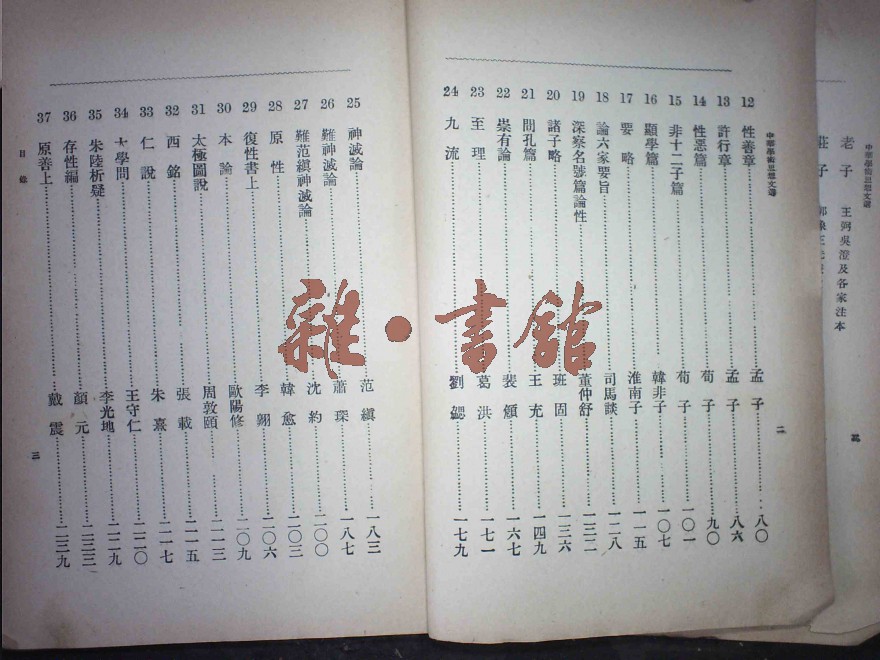 中華學術思想文選
老子 王弼吳澄及各家注本
莊子
中華學術思想文選
12 性善章 孟子 八〇
13 許行章 孟子 八六
14 性惡篇 荀子 九〇
15 非十二子篇 荀子 一〇一
16 顯學篇 韓非子 一〇七
17 要略 淮南子 一一五
18 論六家要旨 司馬談 一二八
19 深察名號篇論性 董仲舒 一三二
20 諸子略 班固 一三六
21 問孔篇 王充 一四九
22 崇有論 裴頠 一六七
23 至理 葛洪 一七一
24 九流 劉勰 一七九
二
25 神滅論 范縝 一八三
26 難神滅論 蕭琛 一八七
27 難范縝神滅論 沈約 二〇〇
28 原性 韓愈 二〇三
29 復性書上 李翱 二〇六
30 本論 歐陽修 二〇九
31 太極圖說 周敦頤 二一三
32 西銘 張載 二一五
33 仁說 朱熹 二一七
34 大學問 王守仁 二二〇
35 朱陸析疑 李光地 二二九
36 存性編 顏元 二三三
37 原善上 戴震 二三九
目錄
三
雜·書館